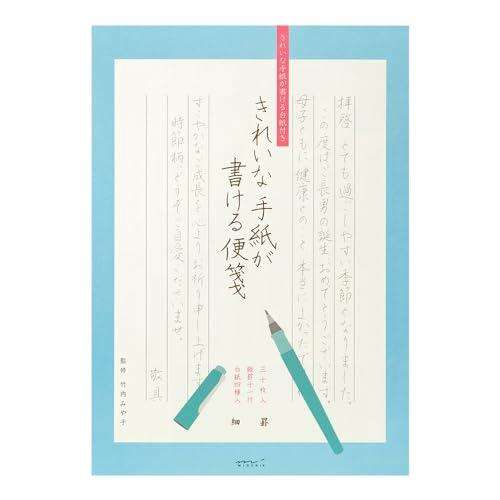 きれいな手紙が書ける台紙付き
拝啓 とても過ごしやすい季節となりました。
この度はご長男の誕生おめでとうございます。
母子ともに健康とのこと 本当に
きれいな 手紙が
書ける 便箋
すこやかなご成長を心よりお祈り申し上げます
時節柄、どうぞご自愛くださいませ。
敬具
三十枚入
縦罫十一行
台紙四種入
細 罫
監修 竹内みや子
MIDORI